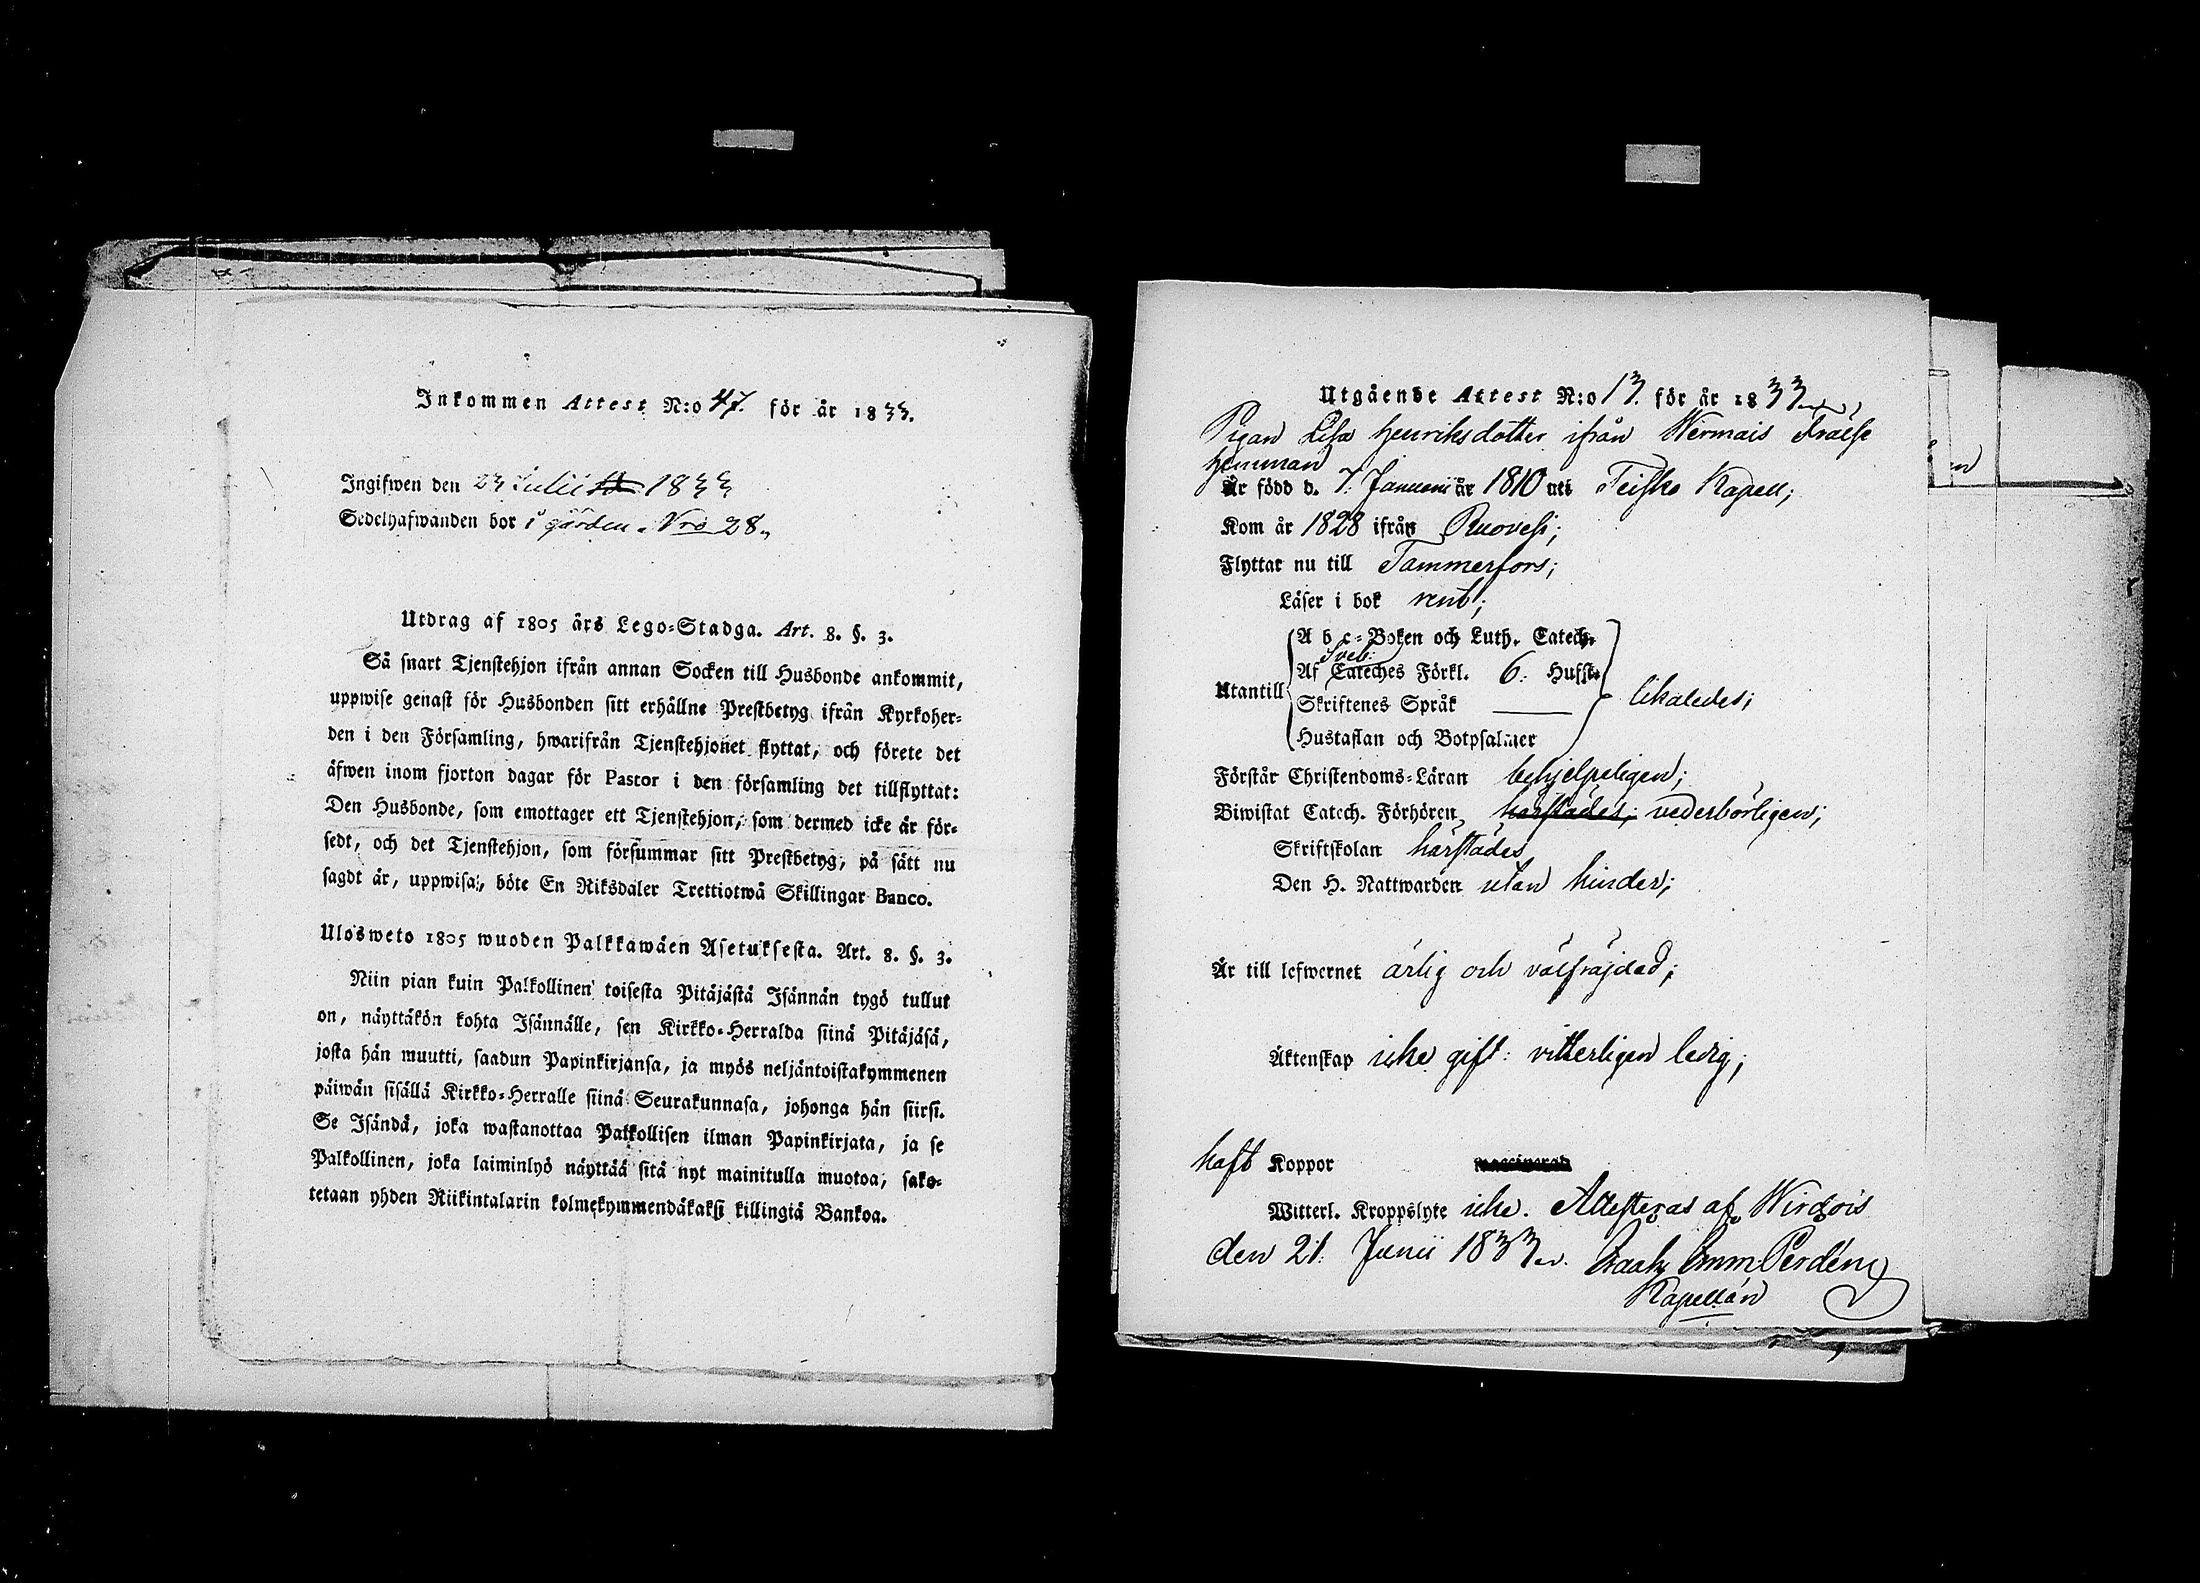 Inkommen Attest N:o 47. för år 1833.
Ingifwen den 23 Julii 1833
Sedelhafwanden bor i gården Nro 28.
Utdrag af 1805 års Lego-Stadga. Art. 8. §. 3.
Så snart Tjenstehjon ifrån annan Socken till Husbonde ankommit,
uppwise genast för Husbonden sitt erhållne Prestbetyg ifrån Kyrkoher-
den i den Församling, hwarifrån Tjenstehjonet flyttat, och förete det
äfwen inom fjorton dagar för Pastor i den församling det tillflyttat:
Den Husbonde, som emottager ett Tjenstehjon, som dermed icke är för-
sedt, och det Tjenstehjon, som försummar sitt Prestbetyg, på sätt nu
sagdt är, uppwisa, böte En Riksdaler Trettiotwå Skillingar Banco.
Ulosweto 1805 wuoden Palkkawäen Asetuksesta. Art. 8. §. 3.
Niin pian kuin Palkollinen toisesta Pitäjästä Isännän tygö tullut
on, näyttäkön kohta Isännälle, sen Kirkko-Herralda siinä Pitäjäsä,
josta hän muutti, saadun Papinkirjansa, ja myös neljäntoistakymmenen
päiwän sisällä Kirkko-Herralle siinä Seurakunnasa, johonga hän siirsi.
Se Isändä, joka wastanottaa Palkollisen ilman Papinkirjata, ja se
Palkollinen, joka laiminlyö näyttää sitä nyt mainitulla muotoa, sako-
tetaan yhden Riikintalarin kolmekymmendäkaksi killingiä Bankoa.
Utgående Attest N:o 13. för år 1833.
Pigan Lisa Henriksdotter ifrån Wermais Frälse
hemman
Är född d. 7. Januarii år 1810 uti Teisko Kapell;
Kom år 1828 ifrån Ruovesi;
Flyttar nu till Tammerfors;
Läser i bok rent;
A b c-Boken och Luth. Catech.
Sveb:
Af Cateches Förkl. 6. Hufst.
Utantill Skriftenes Språk likaledes;
Hustaflan och Botpsalmer
Förstår Christendoms-Läran behjelpeligen;
Biwistat Catech. Förhören härstädes; vederbörligen;
Skriftskolan härstädes
Den H. Nattwarden utan hinder;
Är till lefwernet ärlig och välfräjdad;
Äktenskap icke gift: vitterligen ledig;
haft Koppor
Witterl. Kroppslyte icke. Attesteras af Wirdois
den 21. Junii 1833. Isaak Emm Perdén
Kapellan